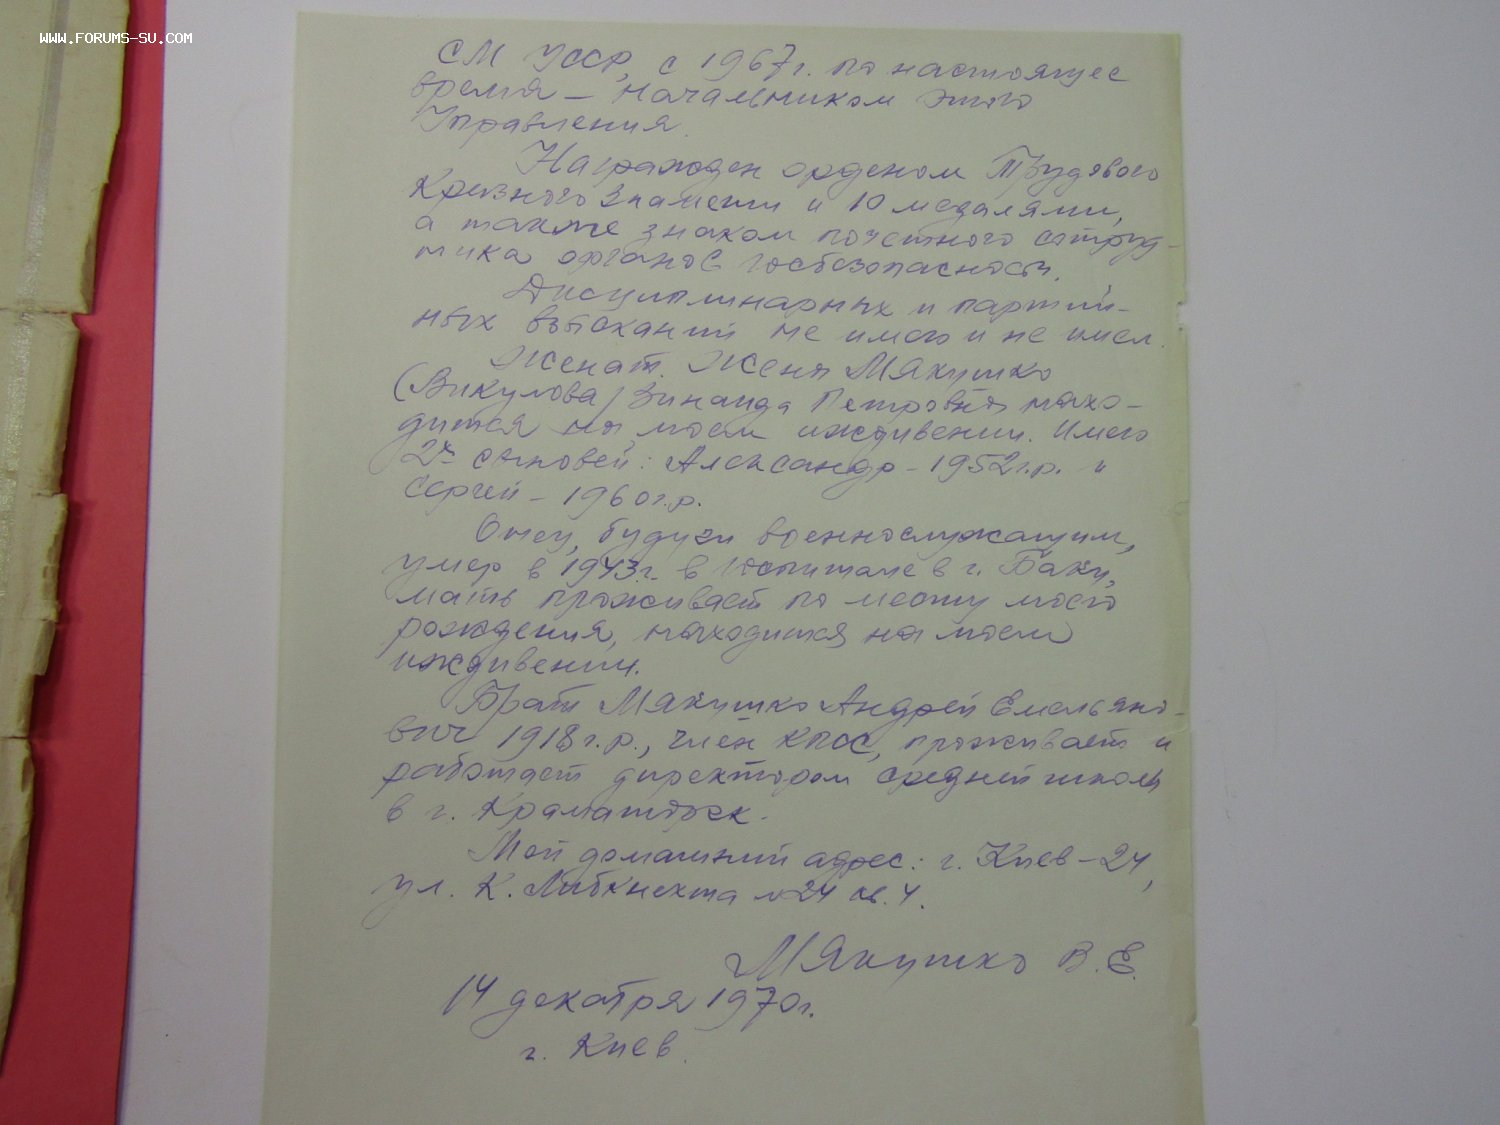 WWW.FORUMS-SU.COM
СМ УССР, с 1967г. по настоящее
время – начальником этого
Управления.
Награжден орденом Трудового
Красного Знамени и 10 медалями,
а также знаком почетного сотруд-
ника органов госбезопасности.
Дисциплинарных и партий-
ных взысканий не имею и не имел.
Женат. Жена Мякушко
(Викулова) Зинаида Петровна нахо-
дится на моем иждивении. Имею
2х сыновей: Александр – 1952г.р. и
Сергей – 1960г.р.
Отец, будучи военнослужащим,
умер в 1943г. в госпитале в г. Баку,
мать проживает по месту моего
рождения, находится на моем
иждивении.
Брат Мякушко Андрей Емельяно-
вич 1918г.р., член КПСС, проживает и
работает директором средней школы
в г. Краматорск.
Мой домашний адрес: г. Киев-24,
ул. К. Либкнехта №24 кв. 4.
Мякушко В.Е.
14 декабря 1970г.
г. Киев.